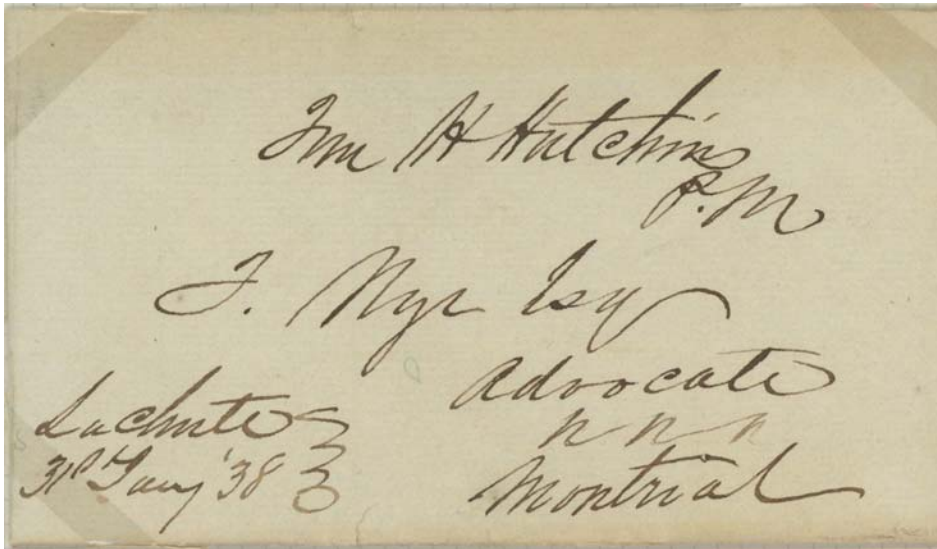 Wm H Hutchins
P.M
T. Nye Esq
Advocate
Montreal
Lachute
31st Jany '38